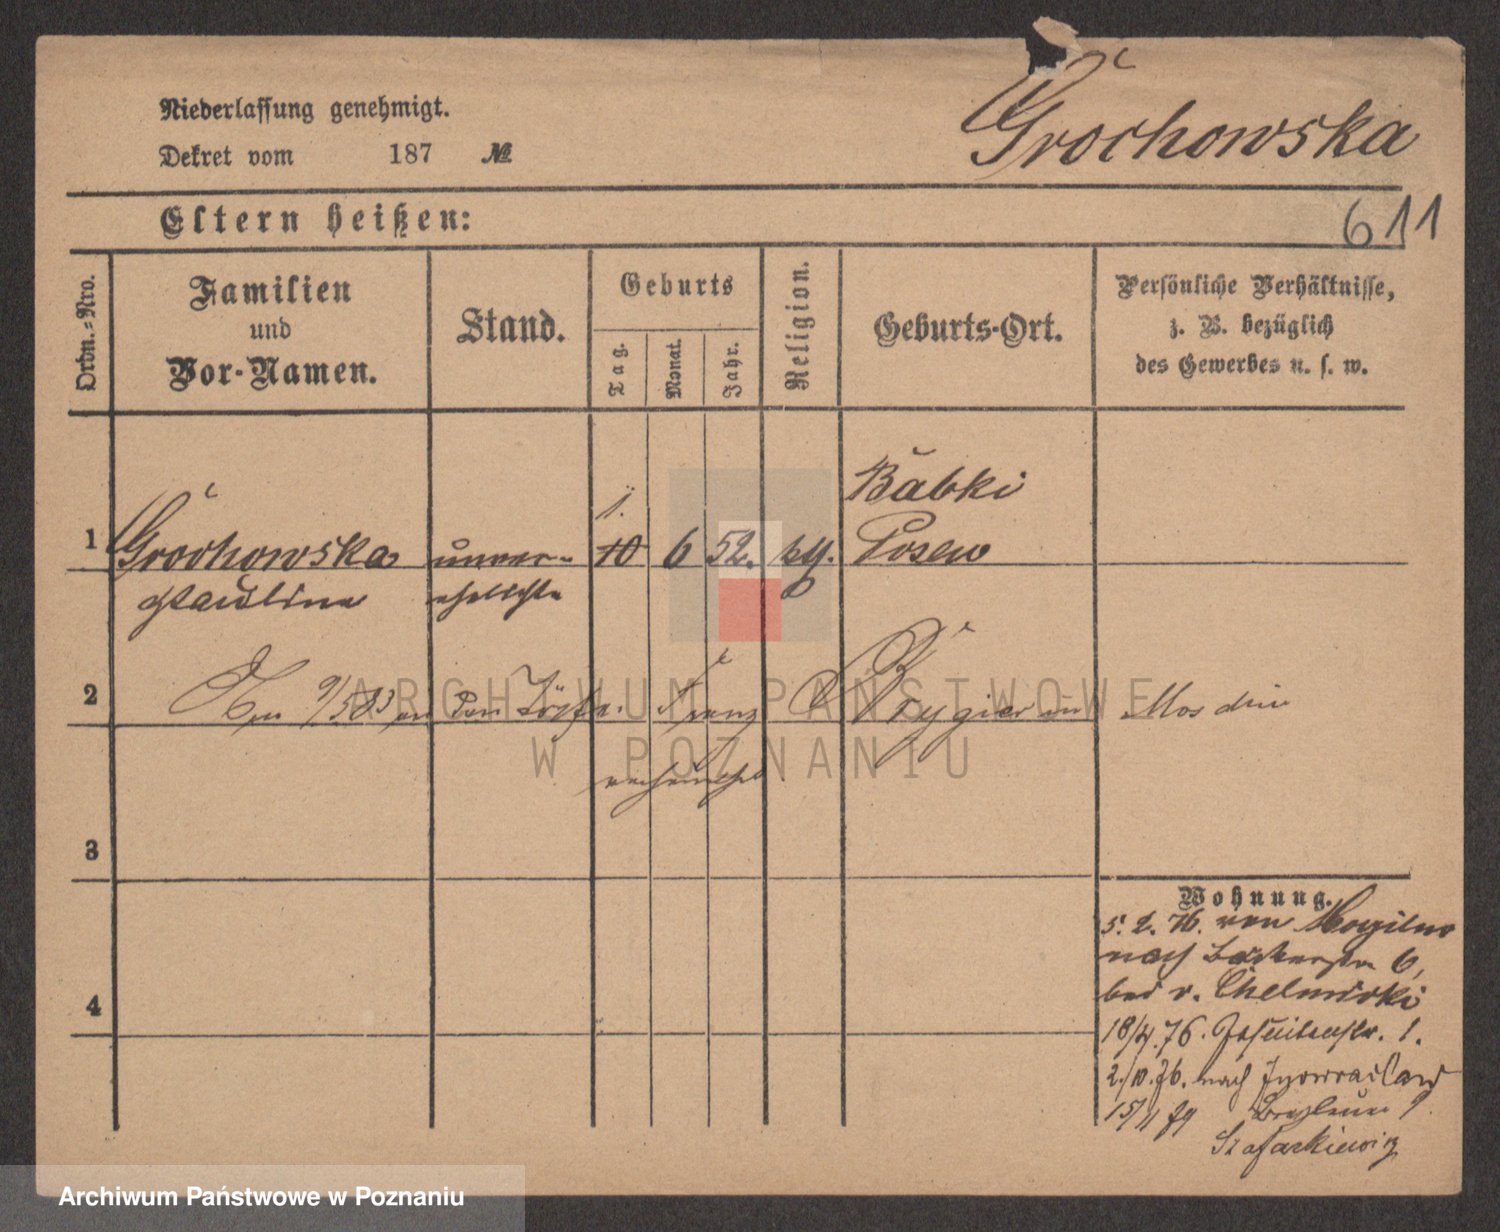 Niederlassung genehmigt.
Dekret vom 187 №
Grochowska
Eltern heißen:
611
Ordn.-Nro.
Familien
und
Vor-Namen.
Stand.
Geburts
Tag.
Monat.
Jahr.
Religion.
Geburts-Ort.
Persönliche Verhältnisse,
z. B. bezüglich
des Gewerbes u. s. w.
Babki
1.
1 Grochowska unver- 10 6 52. kg. Posen
Pauline ehelichte
2 9/5 83 den Franz Brygier in Moschin
ARCHIWUM PAŃSTWOWE
W POZNANIU
3
Wohnung.
5. 2. 76. von Mogilno
nach Bäckerstr 6,
bei v. Chelmicki
4
18/4. 76. Jesuitenstr. 1.
2./10. 76. nach Inowraclaw
15/11 79 Breslauer 9.
Szafarkiewicz
Archiwum Państwowe w Poznaniu